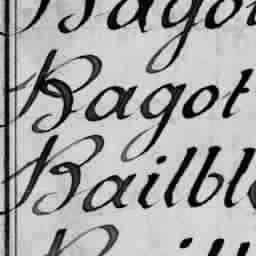 Bagot
Bagot
Bailbl